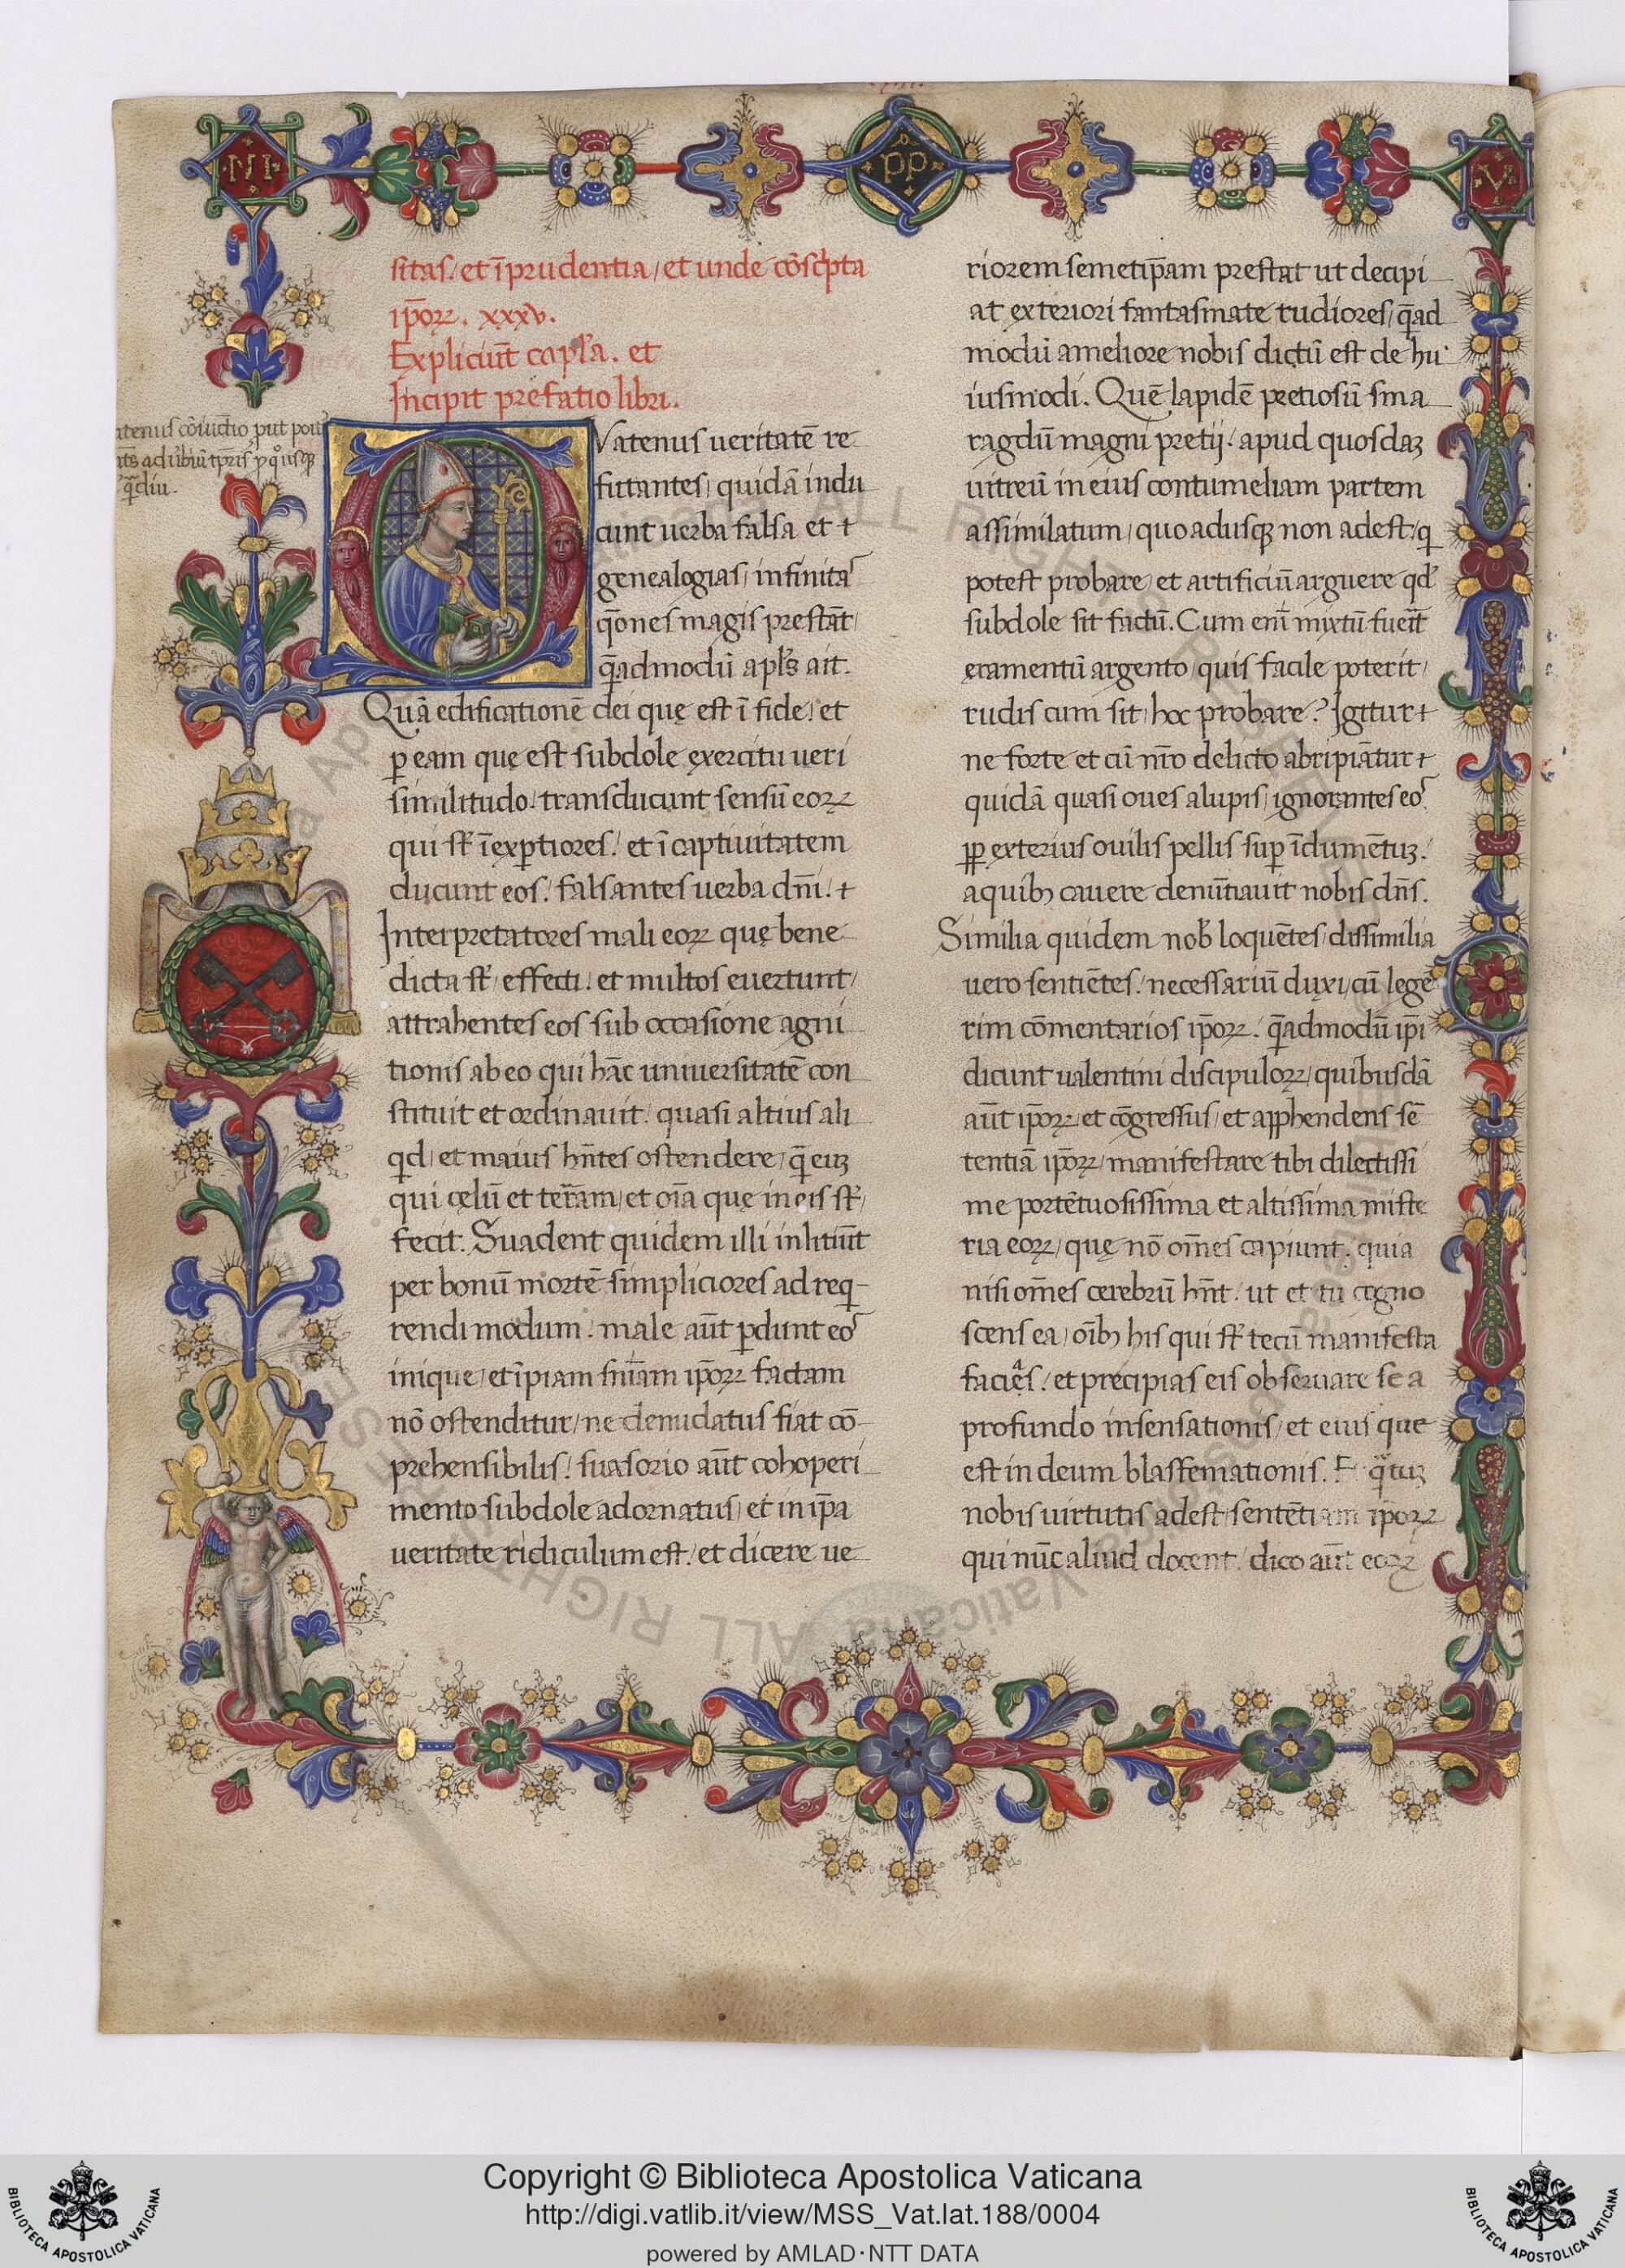 NI
PP
V
sitas. et īprudentia, et unde cōscͥpta
ip̄oꝝ. xxxv.
Expliciūt capl̓a. et
Incipit prefatio libri.
Vatenus ueritatē re
futantes, quidā indu
cunt uerba falsa et ⁊
genealogias, infinitas
q̄ones magis prestāt,
q̄admodū apl̓s ait.
Quā edificationē dei quę est ī fide, et
ꝑ eam quę est subdole ęxercitu ueri
similitudo, transducunt sensū eoꝝ
qui st̄ īexꝑtiores. et ī captiuitatem
ducunt eos, falsantes uerba dn̄i. ⁊
Interpretatores mali eoꝝ quę bene
dicta st̄ effecti. et multos euertunt,
attrahentes eos sub occasione agni
tionis ab eo qui hāc uniuersitatē con
stituit et ordinauit, quasi altius ali
qd, et maius hn̄tes ostendere, q̄ euꝫ
qui cęlū et terrā̄m, et oīa quę in eis st̄,
fecit. Suadent quidem illi inlitiūt
per bonū mortē simpliciores ad req-
rendi modum. male aūt ꝑdunt eos
inique, et īpiam sn̄iam ip̄oꝝ factam
nō ostenditur, ne denudatus fiat cō-
prehensibilis, suasorio aūt cohoperi
mento subdole adornatus, et in ip̄a
ueritate ridiculum est, et dicere ue
riorem semetip̄am prestat ut decipi
at exteriori fantasmate rudiores, q̄ad
modū a meliore nobis dictū est de hu
iusmodi. Quē lapidē pretiosū sma
ragdū magni pretij. apud quosdaꝫ
uitreū in eius contumeliam partem
assimilatum, quoadusqꝫ non adest, q
potest probare, et artificiū arguere qd̓
subdole sit factū. Cum enī mixtū fuerit
ęramentū argento, quis facile poterit,
rudis cum sit, hoc probare? Igitur ⁊
ne forte et cū nr̄o delicto abripiātur ⁊
quidā quasi oues a lupis, ignorantes eos
ꝓꝑ exterius ouilis pellis suꝑīdumētuꝫ.
a quibꝫ cauere denūtiauit nobis dn̄s.
Similia quidem nob̓ loquētes, dissimilia
uero sentiētes, necessariū duxi, cū lege
rim cōmentarios ip̄oꝝ. q̄admodū ip̄i
dicunt ualentini discipuloꝝ, quibusdā
aūt ip̄oꝝ, et cōgressus, et apphendens sē
tentiā ip̄oꝝ, manifestare tibi dilectissi
me portētuosissima et altissima miste
ria eoꝝ, quę nō om̄es capiunt. quia
nisi om̄es cerebrū hn̄t. ut et tu cogno
scens ea, oīb̄ his qui st̄ tecū manifesta
facies. et precipias eis obseruare se a
profundo insensationis, et eius que
est in deum blasfemationis. Et qᵃtuꝫ
nobis uirtutis adest, sentētiam ip̄oꝝ
qui nūc aliud docent, dico aūt eoꝝ
Copyright © Biblioteca Apostolica Vaticana
http://digi.vatlib.it/view/MSS_Vat.lat.188/0004
powered by AMLAD·NTT DATA
BIBLIOTECA APOSTOLICA VATICANA
BIBLIOTECA APOSTOLICA VATICANA